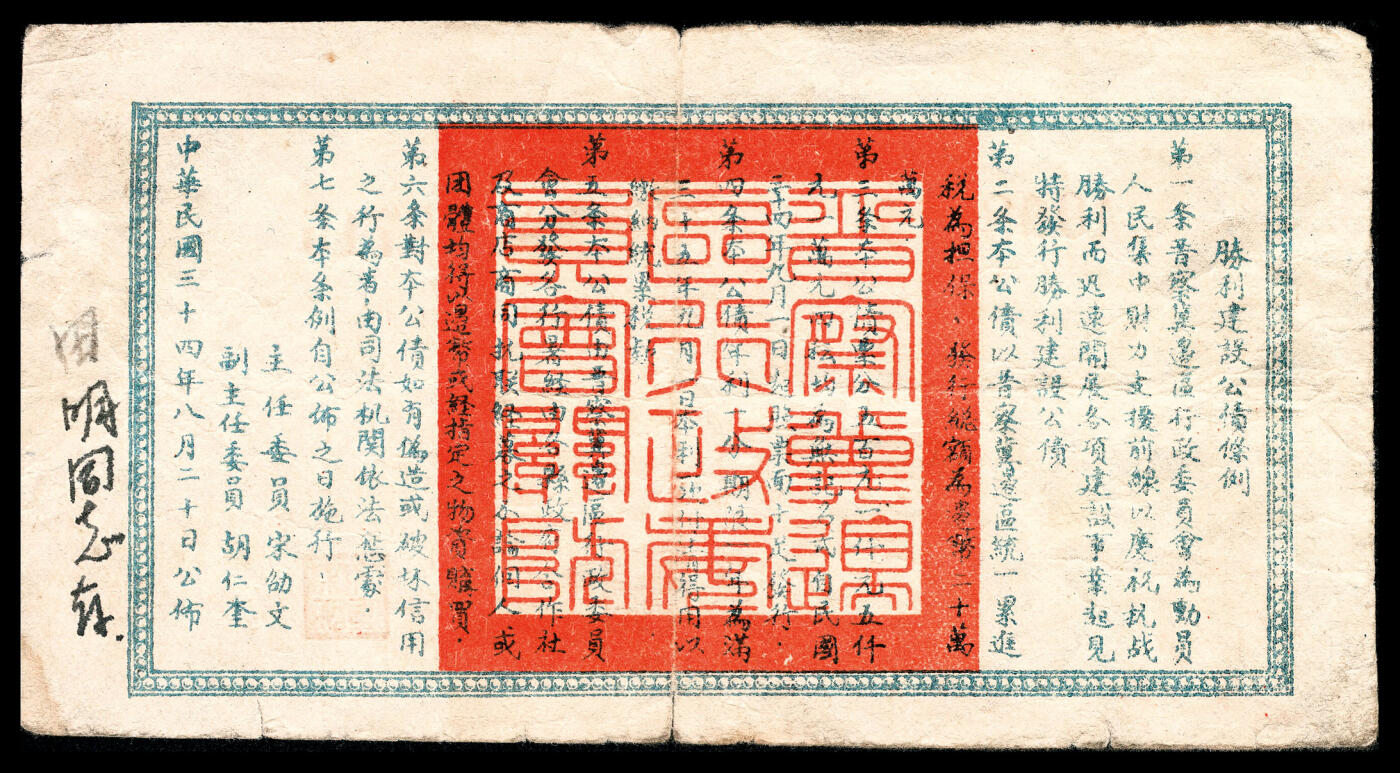 勝利建設公債條例
第一条晋察冀邉區行政委員會為動員
人民集中財力支援前線以慶祝抗战
勝利而迅速開展各項建設事業起見
特發行勝利建設公債
第二条本公債以晋察冀邉區統一累進
税為担保、發行總額為邉幣二十萬
萬元
第三条本公債票分五百元、一仟元五仟
元、一萬元四種均為無記名式自民國
三十四年九月一日起照票面十足發行．
第四条本公債年利一分期限一年為滿
三十五年九月一日本利
繳納統累税款
第五条本公債由晋察冀邉區行政委員
會分發各行署経由各縣政府合作社
及商店商同抗联経募之不論個人或
团體均得以邉幣或経指定之物資購買．
第六条對本公債如有偽造或破坏信用
之行為者，由司法机関依法懲處．
第七条本条例自公佈之日施行．
主任委員宋劭文
副主任委員胡仁奎
中華民國三十四年八月二十日公佈
田明同志存．
晋察冀邊
區行政委
員會關防